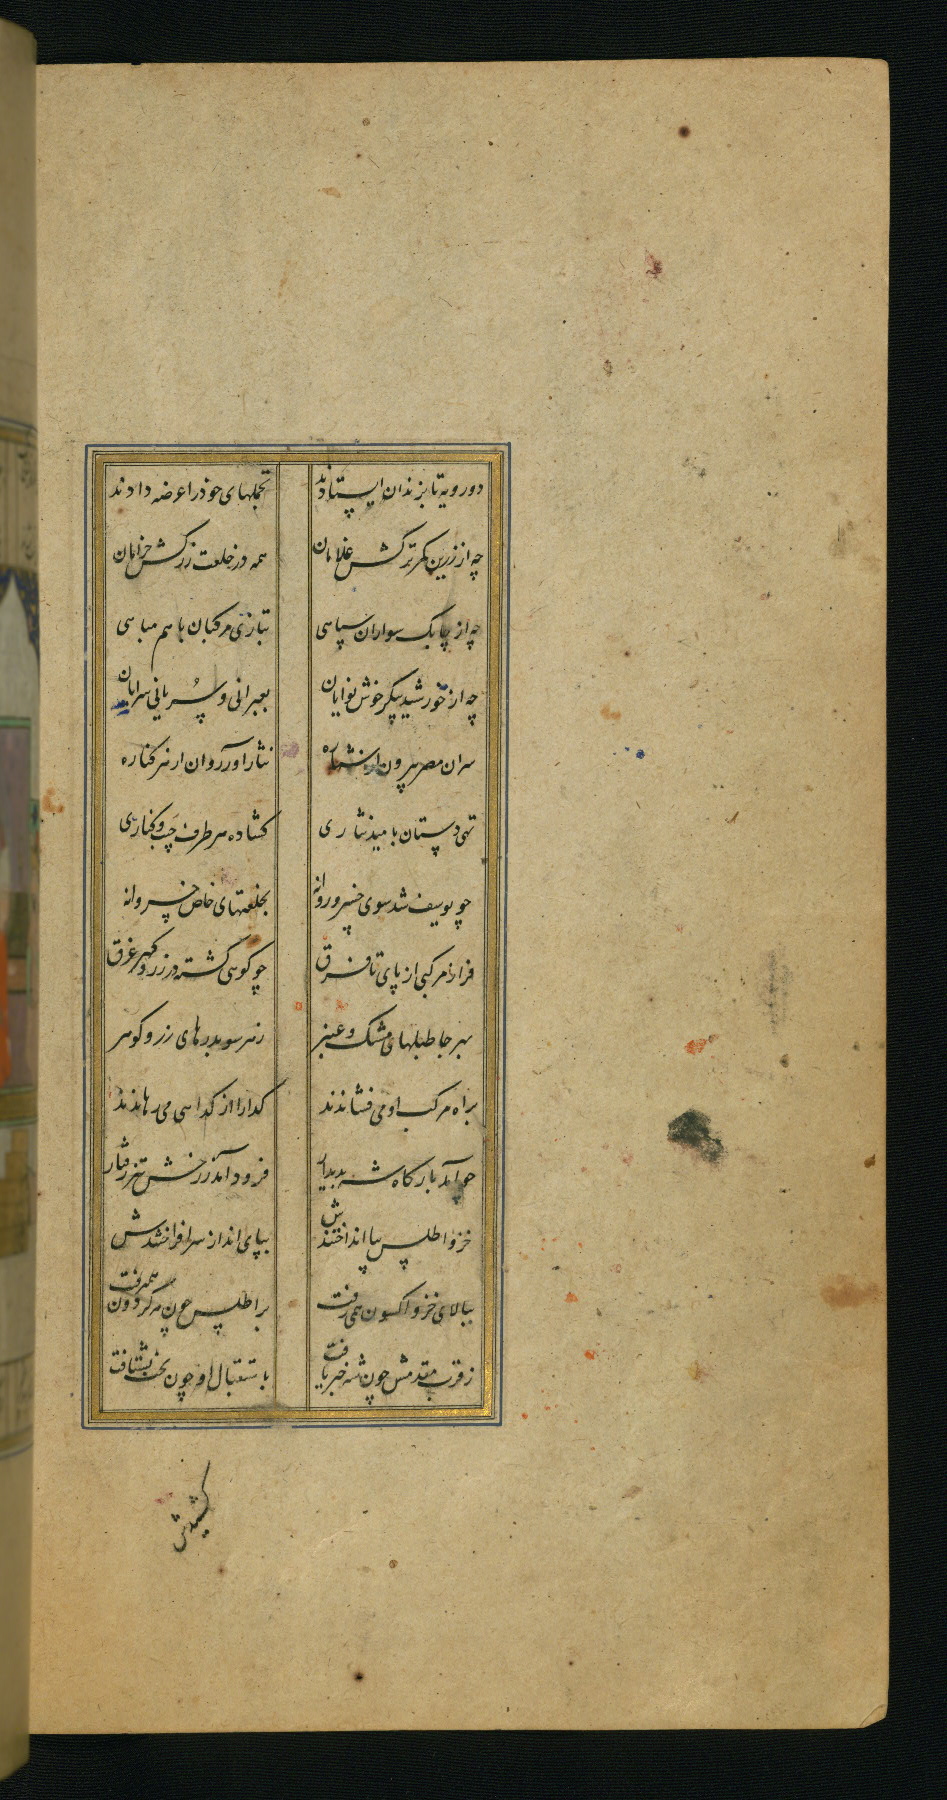 دو رویه تا بزندان ایستادند تجملهای خود را عرضه دادند
چه از زرین کمر ترکش غلامان همه در خلعت زرکش خرامان
چه از چابک سواران سپاهی بتازی مرکبان با هم مباهی
چه از خورشید پیکر خوش نوایان بعبرانی و سُریانی سرایان
سران مصر بیرون از شماره نثار اور آر روان از هر کناره
تهی دستان بامید نثاری کشاده هر طرف جَیب و کناری
چو یوسف شد سوی خسرو روانه بخلعتهای خاص خسروانه
فراز مرکبی از پای تا فرق چو کوهی گشته در زر و گهر غرق
بهر جا طبلهای مشک و عنبر ز هر سو بدرهای زر و گوهر
براه مرکب او می فشاندند گدا را از گدایی می رهاندند
چو آمد بارگاه شه پدیدار فرود آمد ز رخش تیز رفتار
خز و اطلس بپا انداختندش بپای انداز سر افراختندش
ببالای خز و اکسون همی رفت بر اطلس چون مه گردون همی رفت
ز قرب مقدمش چون شه خبر یافت باستقبال او چون بخت بشتافت
کشیدش